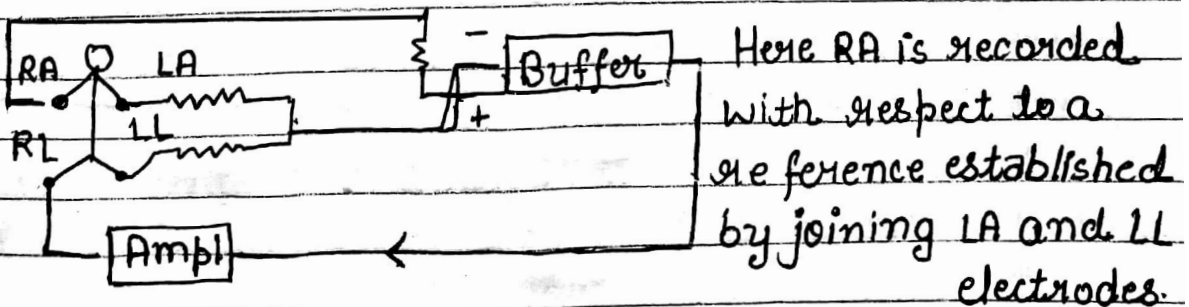 RA LA
LL
RL
-
+
Buffer
Ampl
Here RA is recorded
with respect to a
re ference established
by joining LA and LL
electrodes.